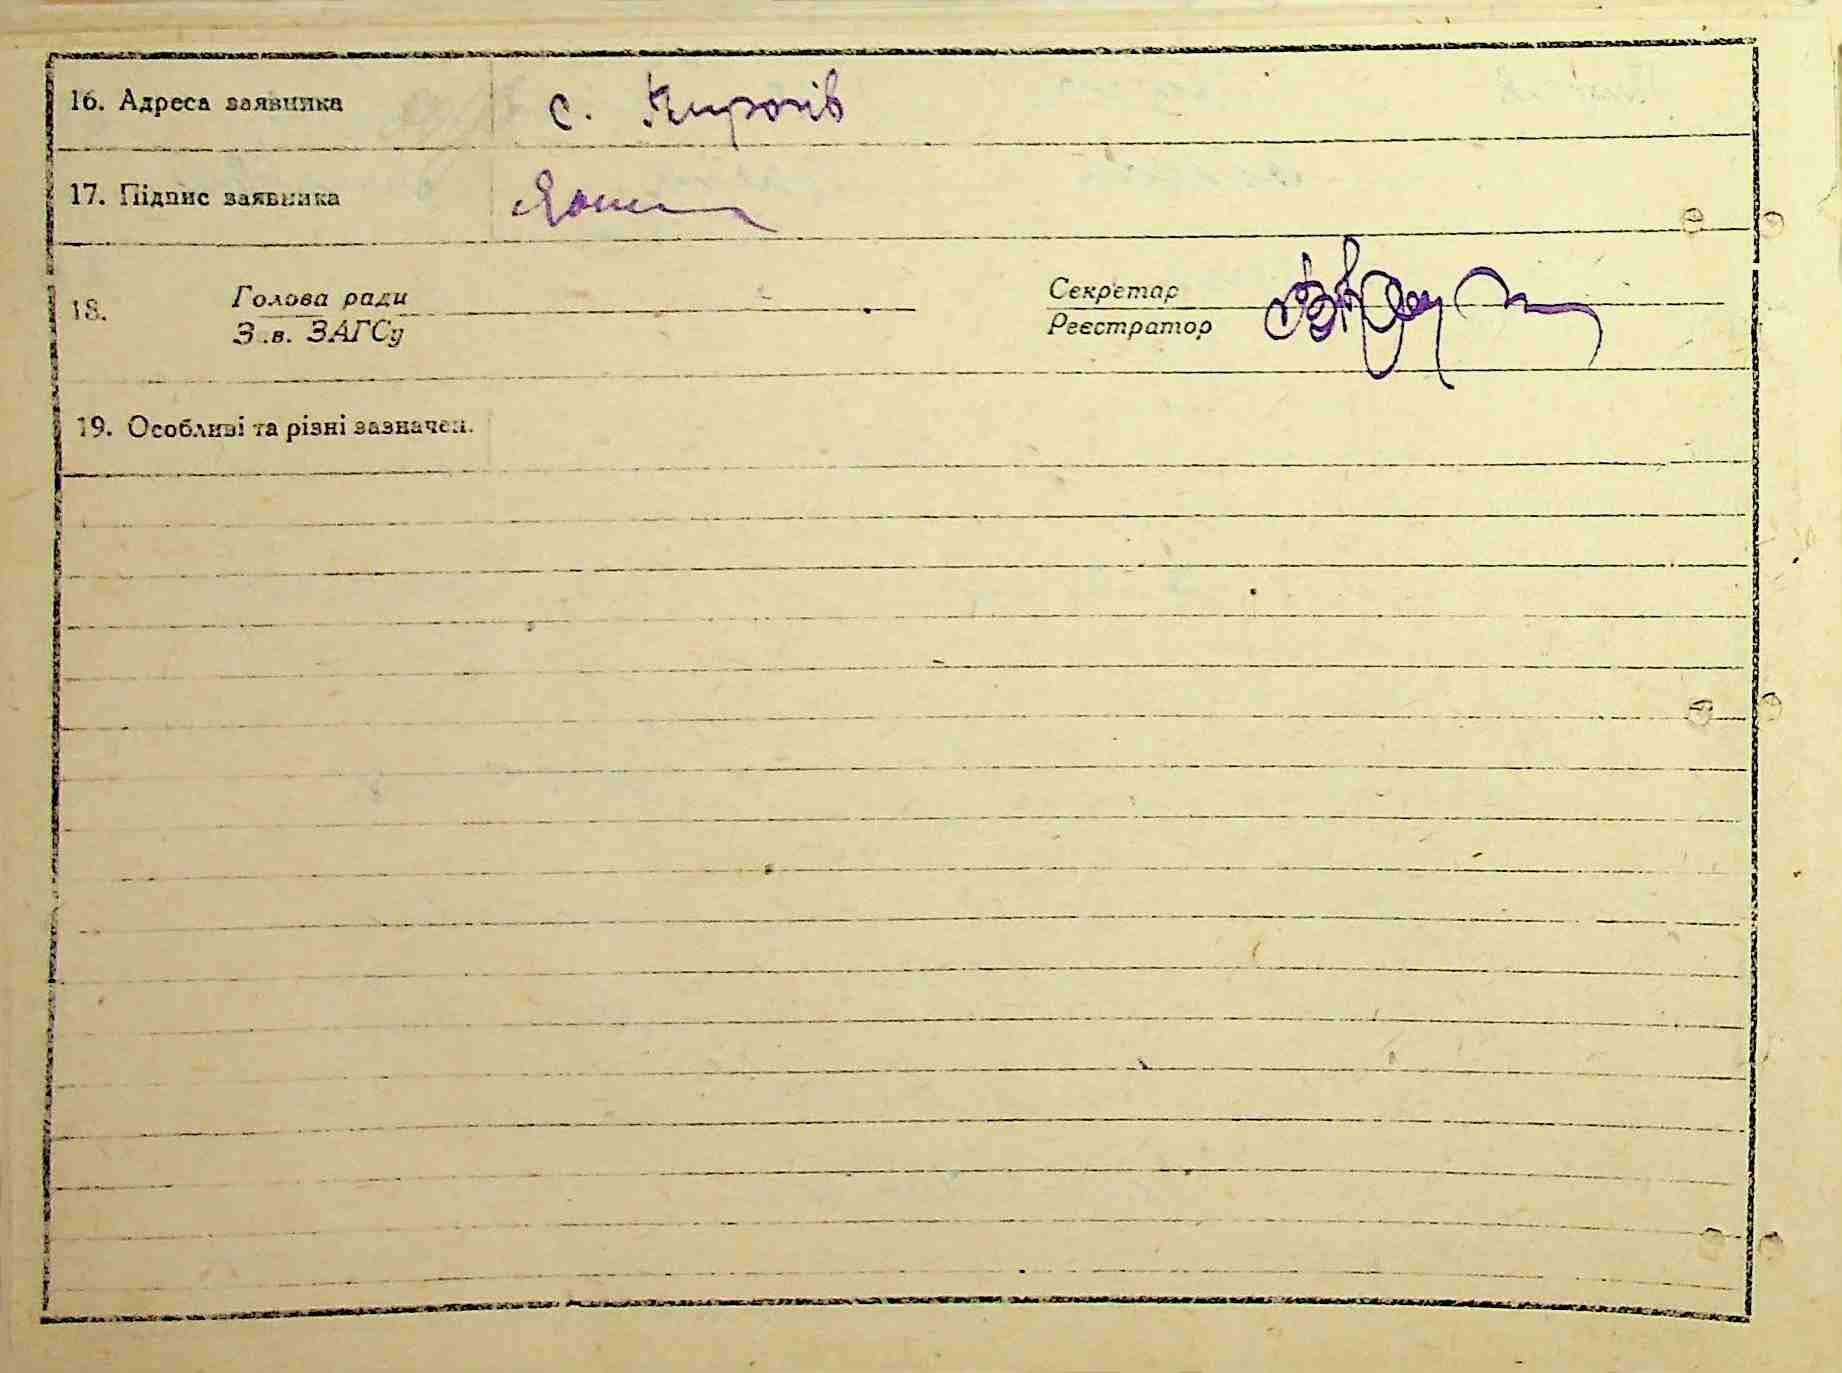 16. Адреса заявника с. Пирогів
17. Підпис заявника
18. Голова ради Секретар
Зав. ЗАГСу Реєстратор
19. Особливі та різні зазначен.